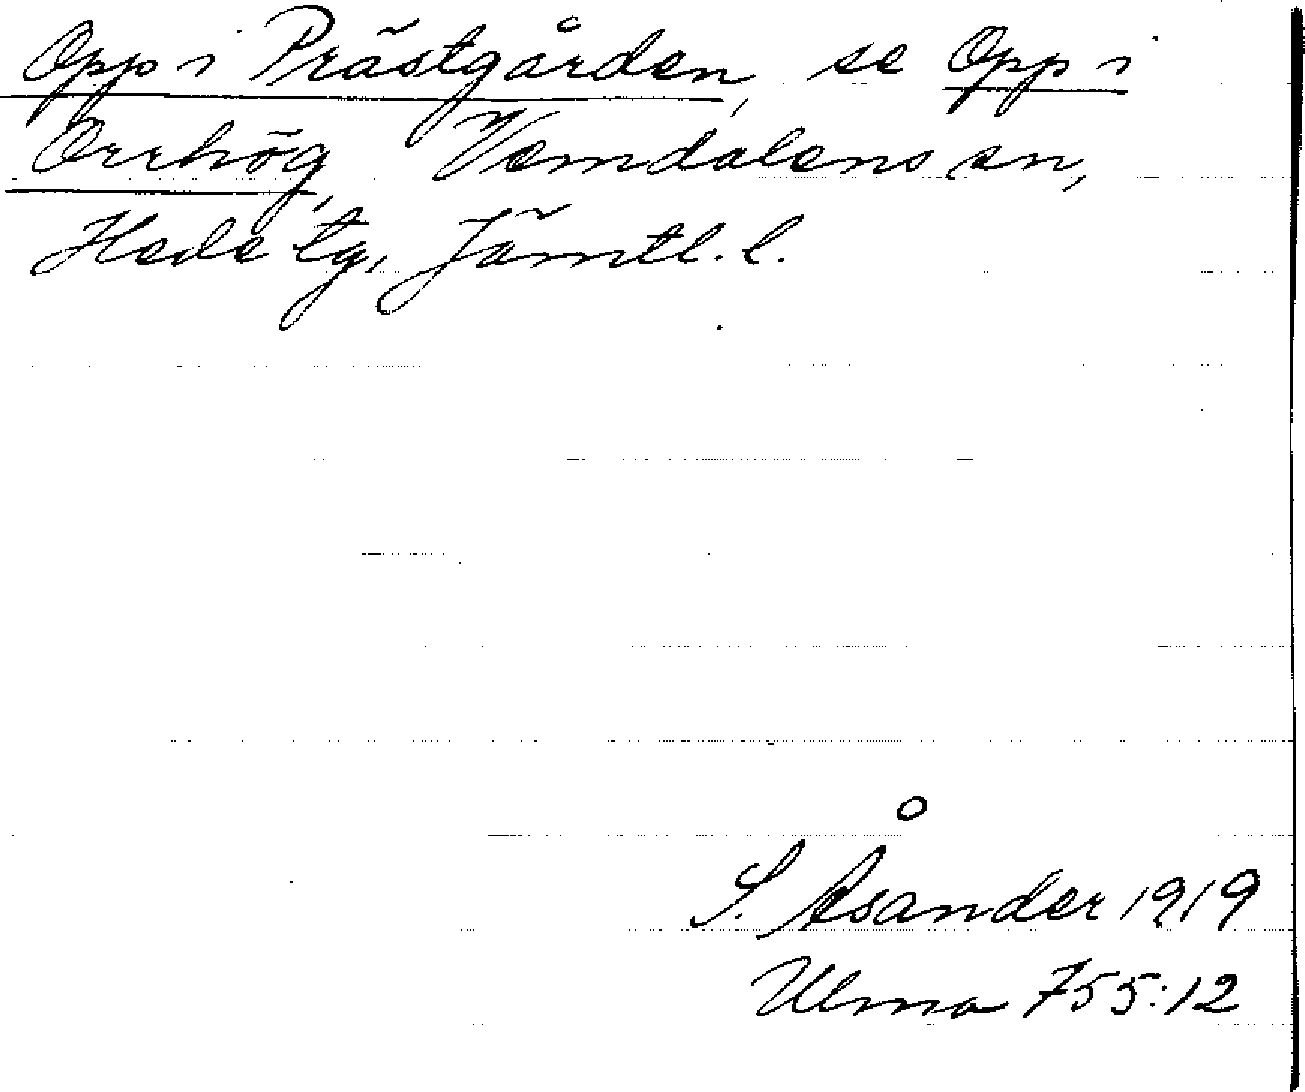 Opp i Prästgården, se Opp i
Orrhög, Vemdalens sn,
Hede tg, Jämtl. l.
S. Åsander 1919
Ulma 755:12